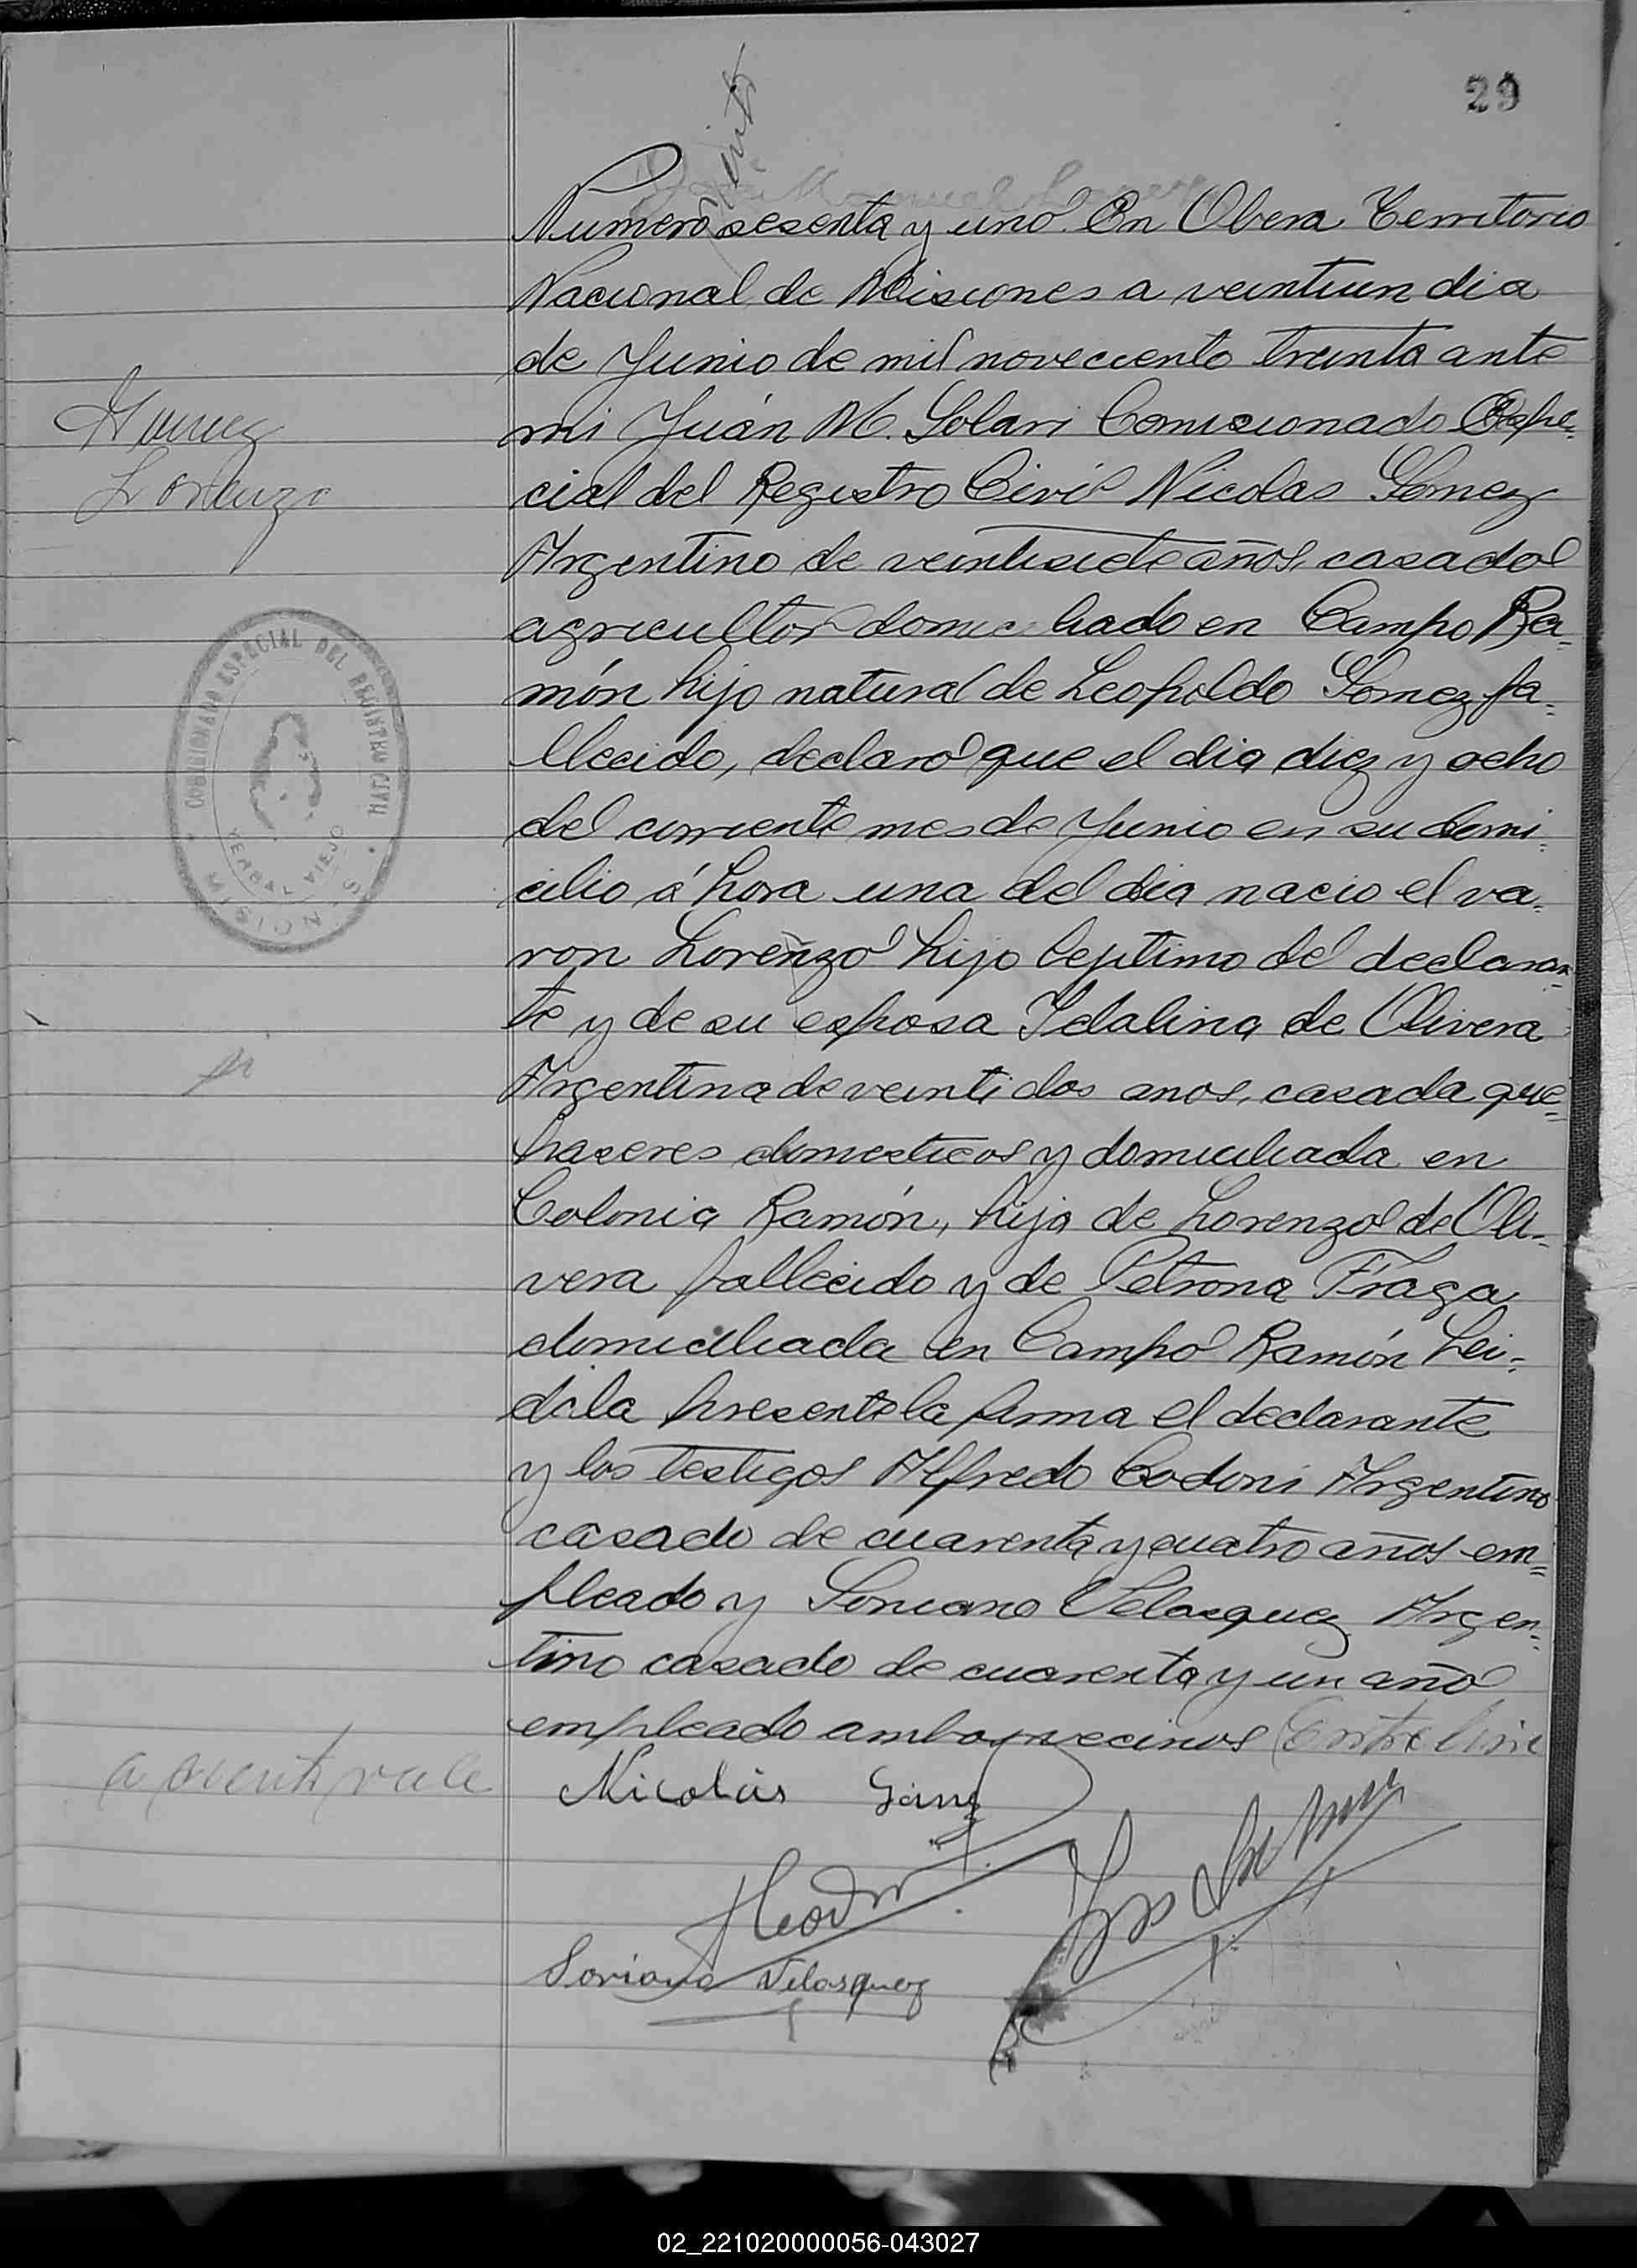 29
Numero sesenta y uno. En Obera Territorio
Nacional de Misiones a veintiun dia
de Junio de mil noveciento treinta ante
mi Juán M. Solari Comicionado Espe-
cial del Registro Civil Nicolas Gomez
Argentino de veintisiete años, casado
agricultor domiciliado en Campo Ra-
món hijo natural de Leopoldo Gomez fa-
llecido, declaró que el dia diez y ocho
del corriente mes de Junio en su domi-
cilio á hora una del dia nacio el va-
ron Lorenzo hijo septimo del declaran-
te y de su esposa Idalina de Olivera
Argentina de veintidos anos, casada que-
haseres domesticos y domiciliada en
Colonia Ramón, hija de Lorenzo de Oli-
vera fallecido y de Petrona Fraga
domiciliada en Campo Ramón Lei-
da la presente la firma el declarante
y los testigos Alfredo Codoni Argentino
casado de cuarenta y cuatro años em-
pleado y Soriano Velasquez Argen-
tino casado de cuarenta y un año
empleado ambos vecinos Entre linie
Gomez
Lorenzo
COMISIONADO ESPECIAL DEL REGISTRO CIVIL
YERBAL VIEJO
MISIONES
vale
Nicolás Gomez
Soriano Velasquez
02_221020000056-043027